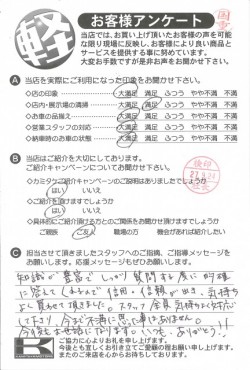 軽
お客様アンケート
当店では、お買い上げ頂いたお客様の声を可能
な限り現場に反映し、お客様により良い商品と
サービスを提供する事に努めています。
大変お手数ですが是非お声をお聞かせ下さい。
A 当店を実際にご利用になった印象をお聞かせ下さい。
◇店の印象 大満足 満足 ふつう やや不満 不満
◇店内・展示場の清掃 大満足 満足 ふつう やや不満 不満
◇お車の品揃え 大満足 満足 ふつう やや不満 不満
◇営業スタッフの対応 大満足 満足 ふつう やや不満 不満
◇納車時のお車の状態 大満足 満足 ふつう やや不満 不満
B 当店はご紹介を大切にしております。
ご紹介キャンペーンについてお聞かせ下さい。
◇カミタケご紹介キャンペーンのご説明はありましたでしょうか
はい いいえ
◇ご紹介頂けますでしょうか
はい いいえ
◇具体的にご紹介頂ける方とのご関係をお聞かせ頂けますか
ご親族 ご友人 職場の方 機会があれば紹介したい
C 担当させて頂きましたスタッフへのご指摘、ご指導メッセージを
お願いします。応援メッセージもぜひお願いします。
知識が豊富で しっかり 質問する度に明確
に答えて
信用。信頼が出き、気持ち
よく買わせて頂きました。スタッフ全員気持ちよく対応
して下さり、今まで不満に思った事はありません。
今後もお世話になります。いつも、ありがとう!!
K
ご協力に心よりお礼を申し上げます。
今後とも宜しくお引き立てご愛顧の程お願い申し上げます。
またのご来店を心からお待ちしております。